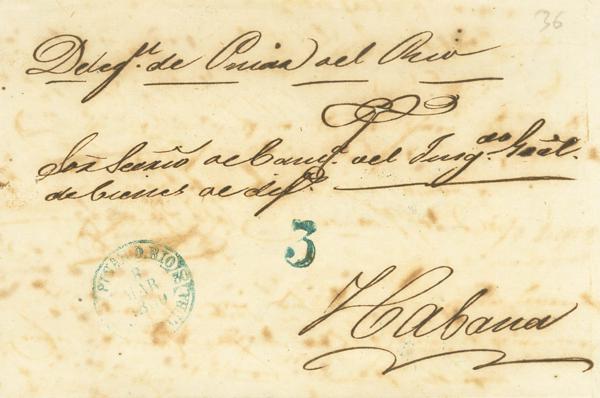 36
de Pinar del Rio
Sor Secrio de Cang. del Juzgdo Gral.
de bienes de difs.
3
PINAR D. RIO
8
MAR
Habana